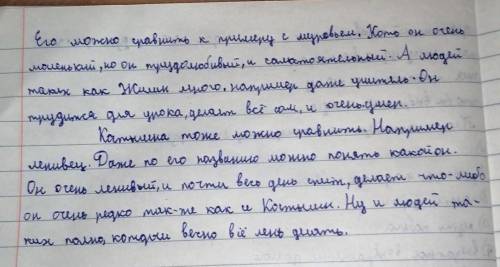 Его можно сравнить к примеру с муравьем. Хоть он очень
маленький, но он трудолюбивый, и самостоятельный. А людей
таких как Жилин много, например даже учитель. Он
трудится для урока, делает всё сам, и очень умен.
Костылина тоже можно сравнить. Например
ленивец. Даже по его названию можно понять какой он.
Он очень ленивый, и почти весь день спит, делает что-либо
он очень редко так-же как и Костылин. Ну и людей та-
ких полно, которым вечно всё лень делать.